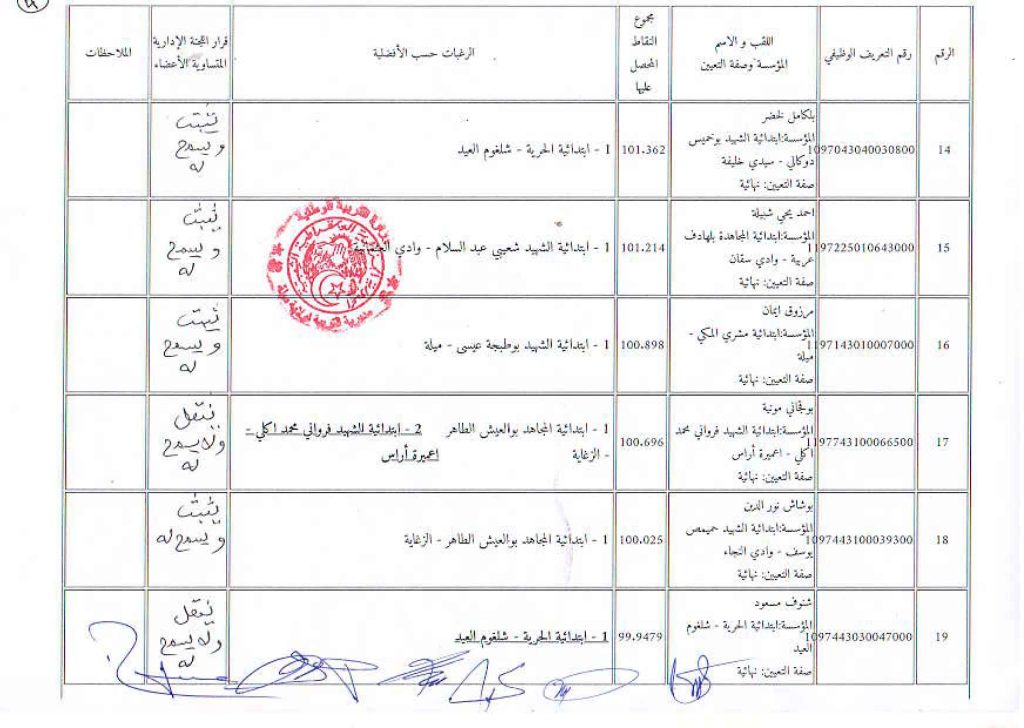 الرقم
رقم التعريف الوظيفي
اللقب و الاسم
المؤسسة وصفة التعيين
مجموع
النقاط
المحصل
عليها
الرغبات حسب الأفضلية
قرار اللجنة الإدارية
المتساوية الأعضاء
الملاحظات
14
1097043040030800
بلكامل لخضر
المؤسسة:ابتدائية الشهيد بوخميس
دوكالي - سيدي خليفة
صفة التعيين: نهائية
101.362
1 - ابتدائية الحرية - شلغوم العيد
يثبت
و يسمح
له
15
1197225010643000
احمد يحي شبيلة
المؤسسة:ابتدائية المجاهدة بلهادف
عربية - وادي سقان
صفة التعيين: نهائية
101.214
1 - ابتدائية الشهيد شعيبي عبد السلام - وادي العثمانية
يثبت
و يسمح
له
16
1197143010007000
مرزوق ايمان
المؤسسة:ابتدائية مشري المكي -
ميلة
صفة التعيين: نهائية
100.898
1 - ابتدائية الشهيد بوطبجة عيسى - ميلة
يثبت
و يسمح
له
17
1197743100066500
بوقجاني مونية
المؤسسة:ابتدائية الشهيد فرواني محمد
اكلي - اعميرة أراس
صفة التعيين: نهائية
100.696
1 - ابتدائية المجاهد بوالعيش الطاهر - الزغاية
2 - ابتدائية الشهيد فرواني محمد اكلي - اعميرة أراس
ينتقل
ولا يسمح
له
18
1097443100039300
بوشاش نور الدين
المؤسسة:ابتدائية الشهيد حميمص
يوسف - وادي النجاء
صفة التعيين: نهائية
100.025
1 - ابتدائية المجاهد بوالعيش الطاهر - الزغاية
يثبت
و يسمح له
19
1097443030047000
شنوف مسعود
المؤسسة:ابتدائية الحرية - شلغوم
العيد
صفة التعيين: نهائية
99.9479
1 - ابتدائية الحرية - شلغوم العيد
ينتقل
ولا يسمح
له
وزارة التربية الوطنية
مديرية التربية لولاية ميلة